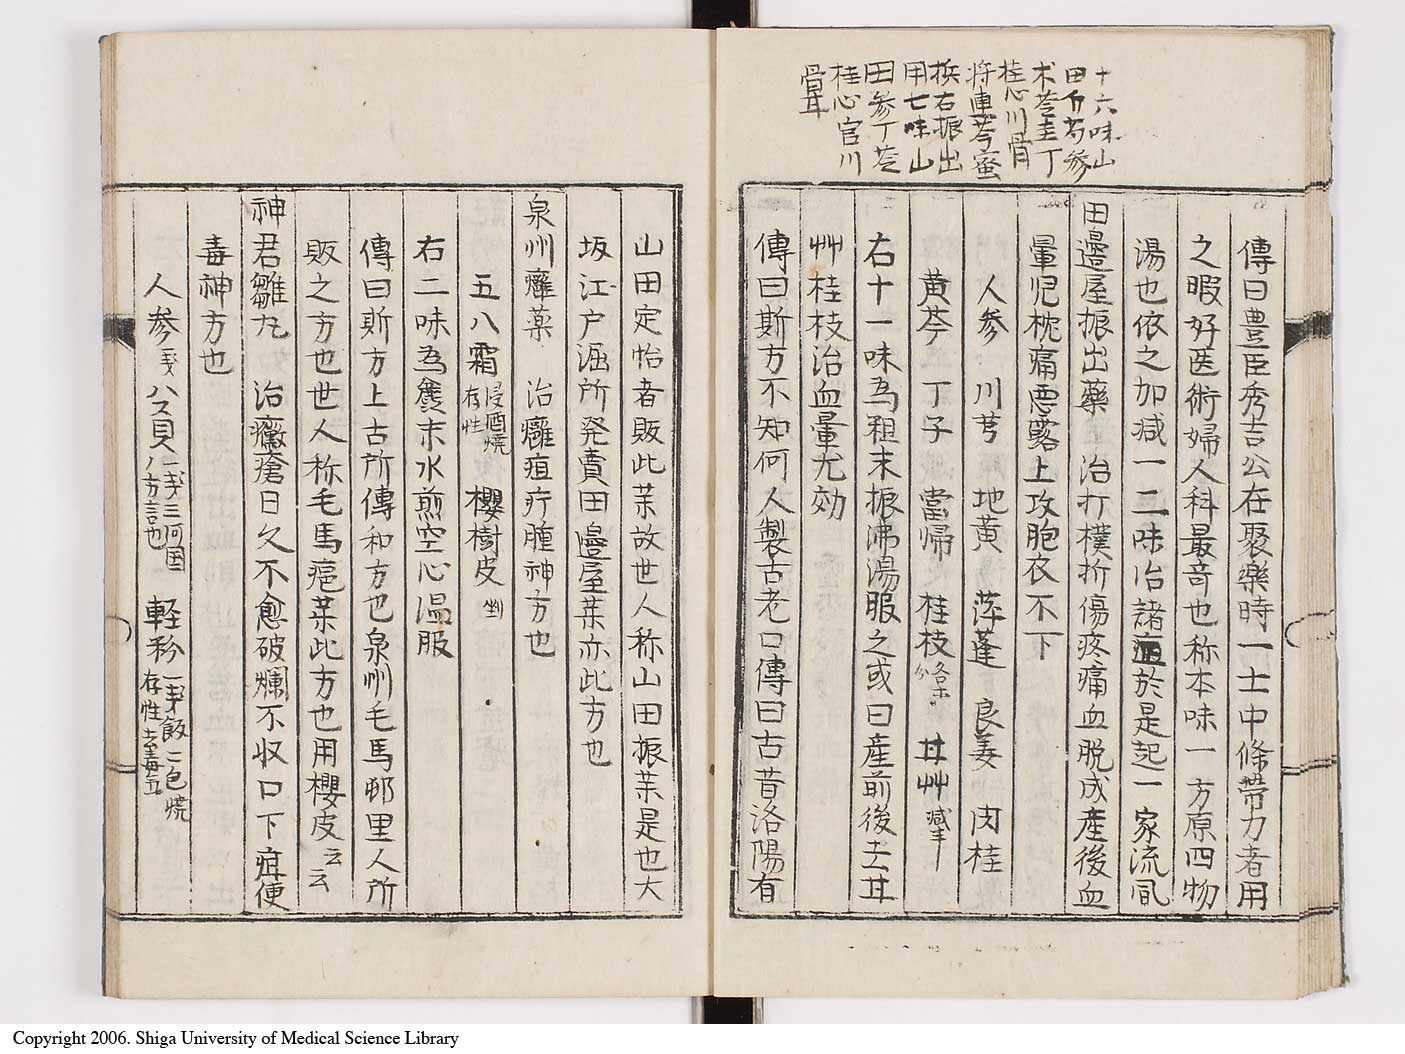 十六味山
田夕芍参
朮苓圭丁
桂心川骨
将車芩蜜
挨右振出
用七味山
田参丁苓
桂心官川
骨茸
傳曰豊臣秀吉公在聚樂時一士中條帯力者用
之暇好医術婦人科最奇也称本味一方原四物
湯也依之加减一二味治諸症於是起一家流凮
田邉屋振出藥 治打撲折傷疼痛血脱成産後血
暈児枕痛悪露上攻胞衣不下
人参 川芎 地黄 萍蓬 良姜 肉桂
黄芩 丁子 當帰 桂枝 各十分 甘艸 减半
右十一味為粗末振沸湯服之或曰産前後去甘
艸桂枝治血暈尤効
傳曰斯方不知何人製古老口傳曰古昔洛陽有
山田定怡者販此薬故世人称山田振薬是也大
坂江户海所発賣田邉屋薬亦此方也
泉州癰薬 治癰疽疔腫神方也
五八霜 浸酒焼存性 櫻樹皮 剉
右二味為糞末水煎空心温服
傳曰斯方上古所傳和方也泉州毛馬邨里人所
販之方也世人称毛馬疱薬此方也用櫻皮云云
神君雛丸 治癥瘡日久不愈破爛不収口下疳便
毒神方也
人参 五戔 ハス貝 一戔三河国八方言也 軽粉 一戔飯二色焼存性去毒五